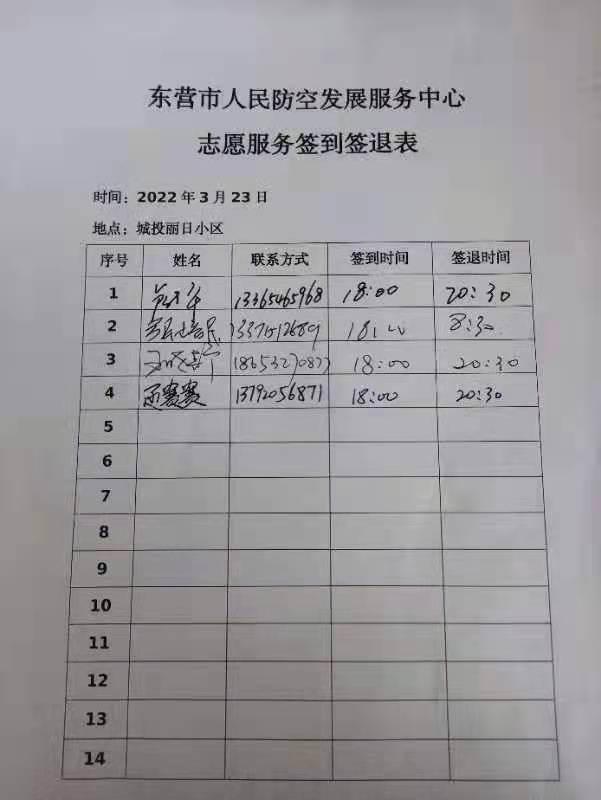 东营市人民防空发展服务中心
志愿服务签到签退表
时间：2022年3月23日
地点：城投丽日小区
序号 姓名 联系方式 签到时间 签退时间
1 13365465968 18:00 20:30
2 8:30
3 18:00 20:30
4 赛赛 13792056871 18:00 20:30
5
6
7
8
9
10
11
12
13
14